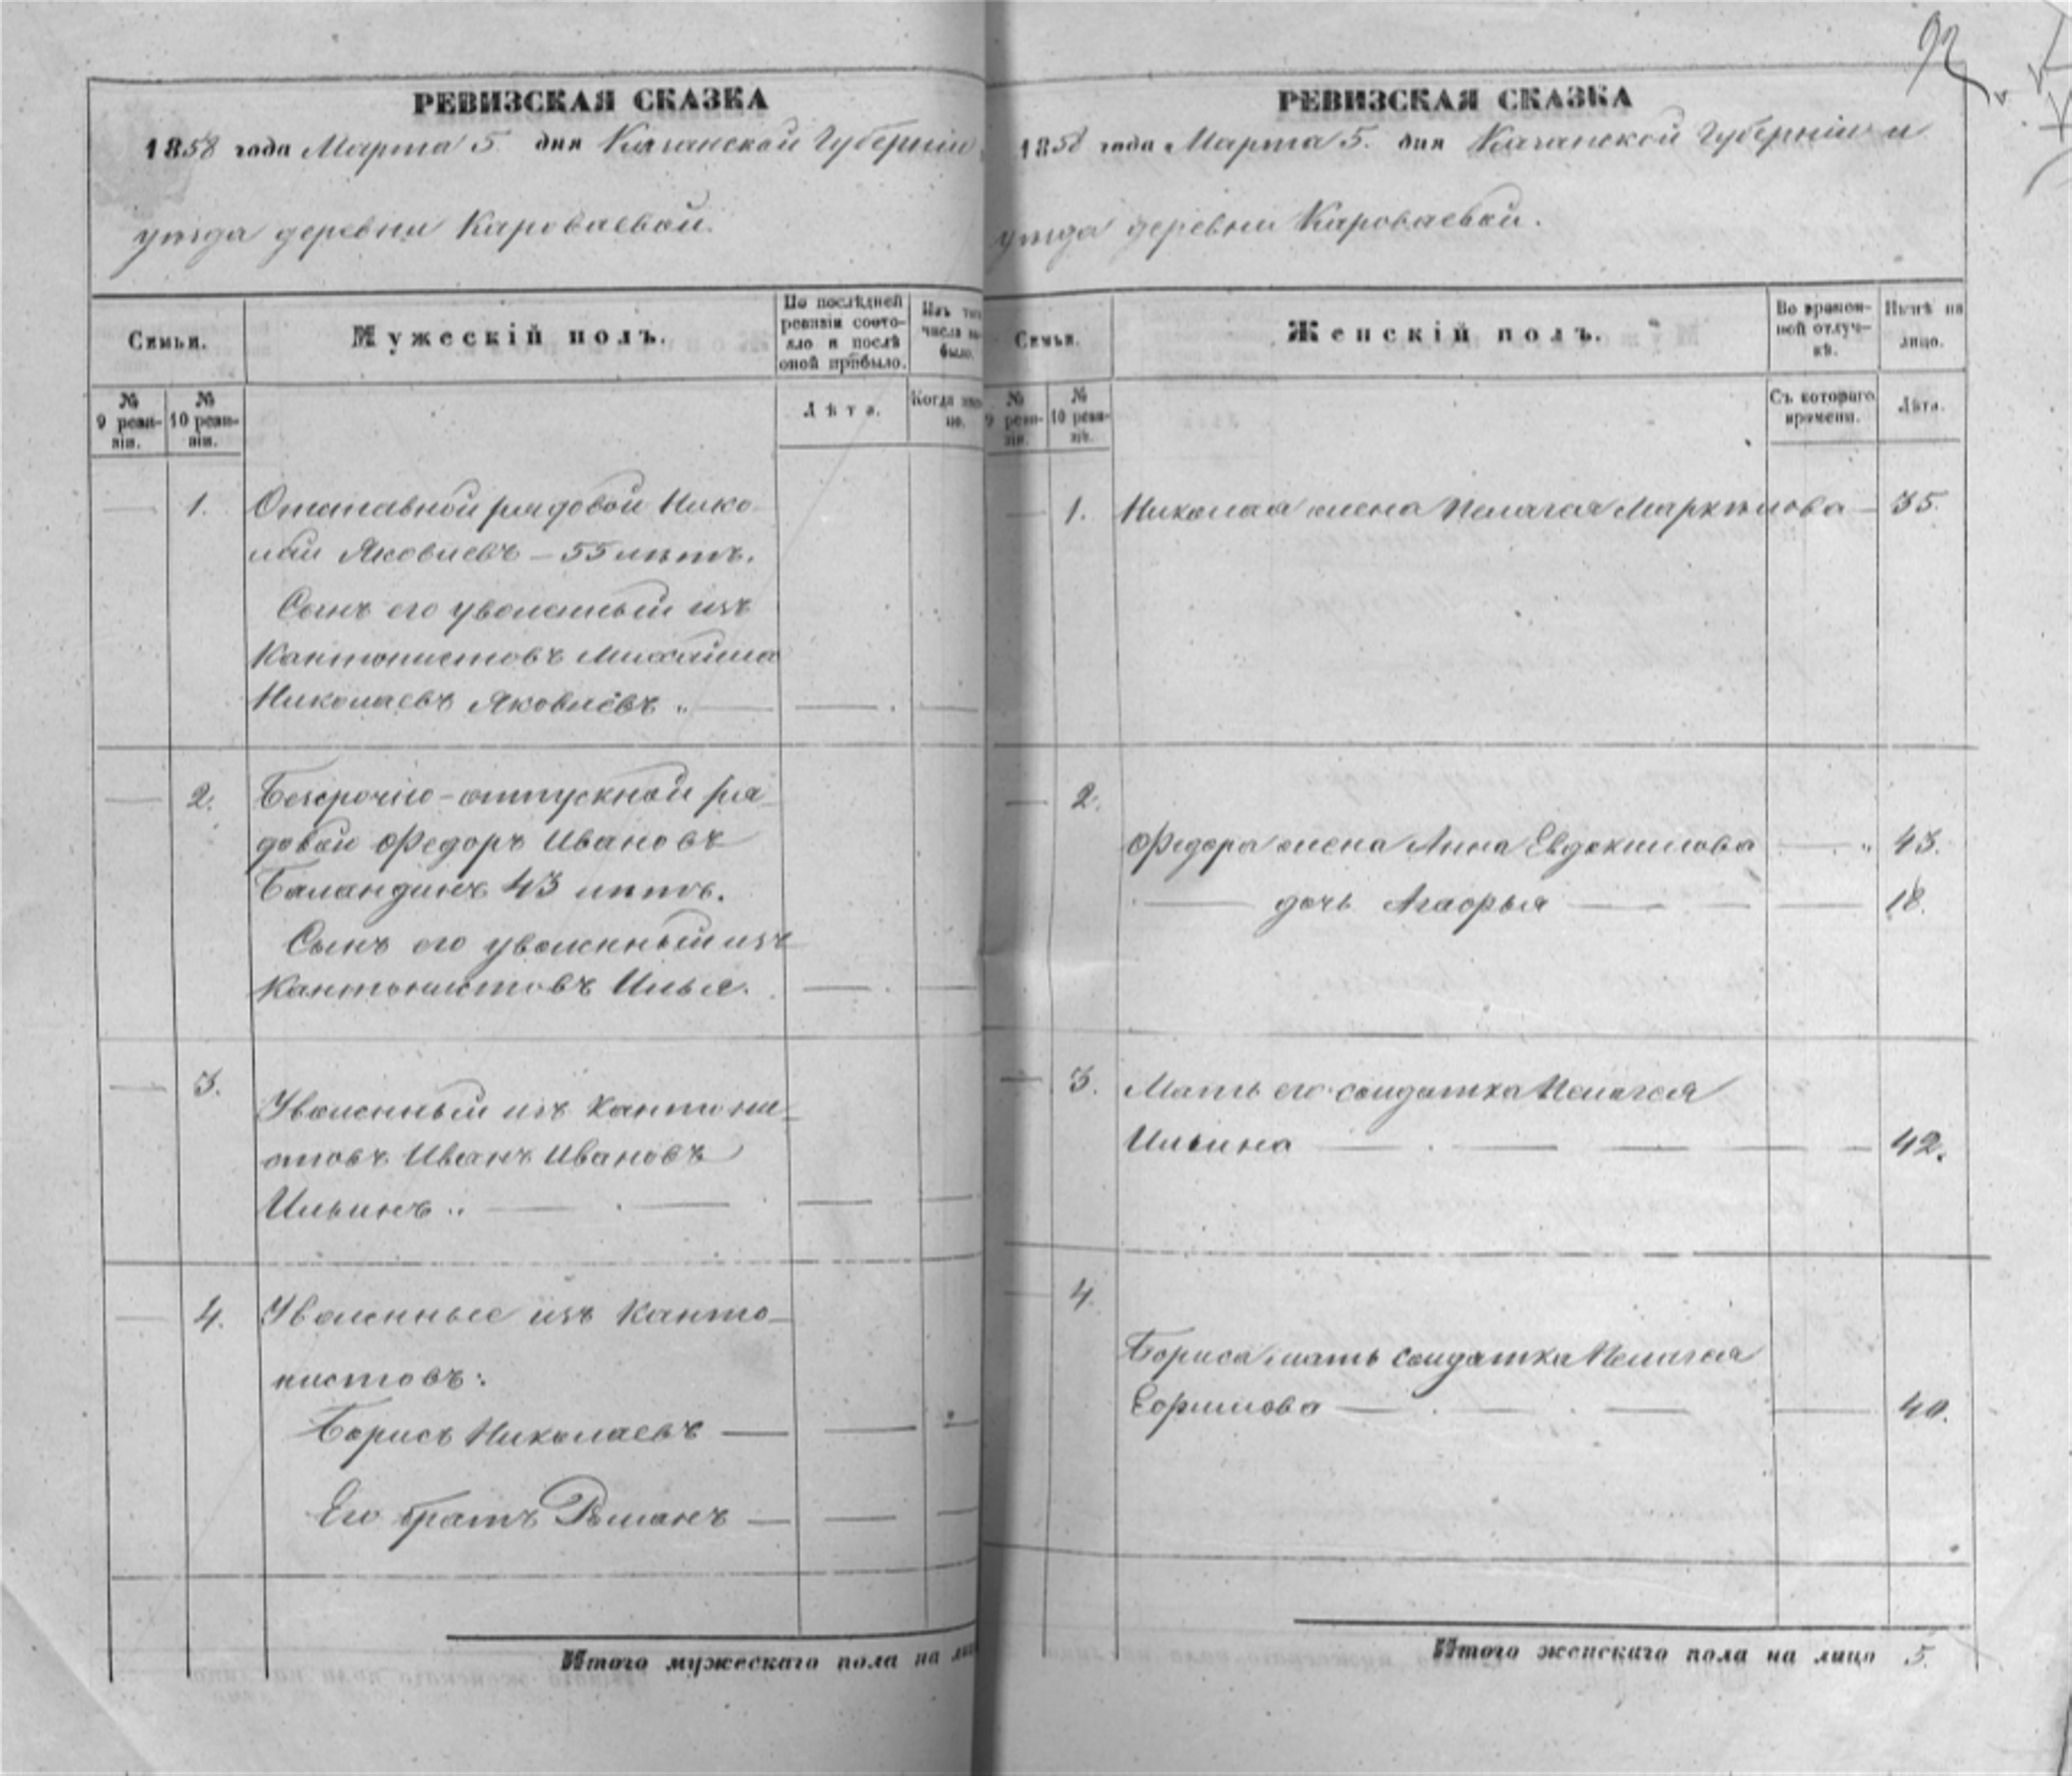 92
РЕВИЗСКАЯ СКАЗКА
1858 года Марта 5. дня Казанской Губерніи
уѣзда деревни Кароваевой.
Семьи.
Мужескій полъ.
По послѣдней ревизіи состояло и послѣ оной прибыло.
Изъ того числа выбыло.
№ 9 ревизіи.
№ 10 ревизіи.
Лѣта.
Когда имен-но.
— 1. Отставной рядовой Нико-
лай Яковлевъ — 55 лѣтъ.
Сынъ его уволенный изъ
Кантонистовъ Михайла
Николаевъ Яковлевъ „ —
— 2. Безсрочно-отпускной ря-
довой Федоръ Ивановъ
Баландинъ 43 лѣтъ.
Сынъ его уволенный изъ
Кантонистовъ Илья.
— 3. Уволенный изъ Кантони-
стовъ Иванъ Ивановъ
Ильинъ „ —
— 4. Уволенные изъ Канто-
нистовъ:
Борисъ Николаевъ —
Его братъ Романъ —
Итого мужескаго пола на
РЕВИЗСКАЯ СКАЗКА
1858 года Марта 5. дня Казанской Губерніи и
уѣзда деревни Кароваевой.
Семьи.
Женскій полъ.
Во времен-ной отлуч-кѣ.
Нынѣ на лицо.
№ 9 реви-зіи.
№ 10 реви-зіи.
Съ котораго времени.
Лѣта.
— 1. Николая жена Пелагея Маркѣлова — 35.
— 2.
Федора жена Анна Евдокимова — „ 43.
— дочь Агафья — 18.
— 3. Мать его солдатка Пелагея
Ильина — 42.
— 4.
Бориса мать солдатка Пелагея
Ефимова — 40.
Итого женскаго пола на лицо 5.